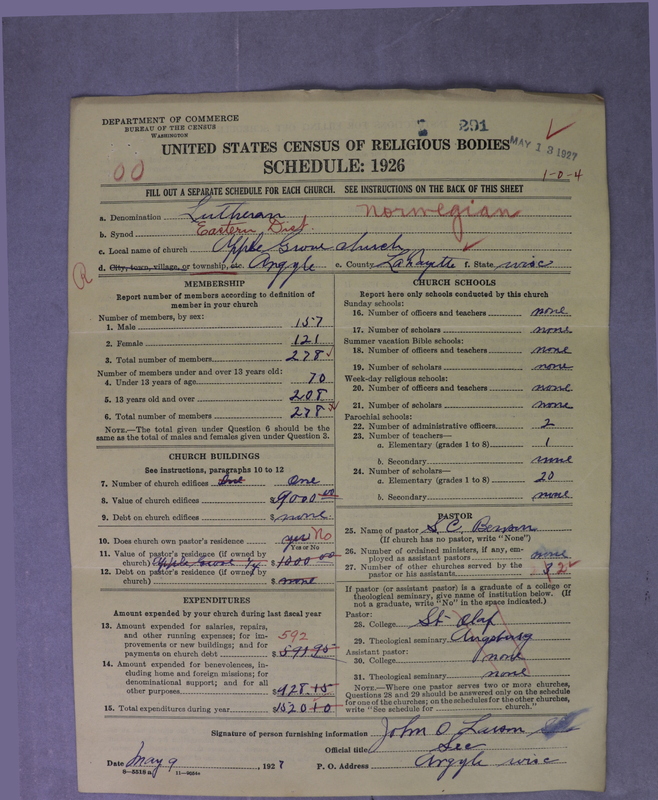 DEPARTMENT OF COMMERCE
BUREAU OF THE CENSUS
WASHINGTON
291
MAY 13 1927
UNITED STATES CENSUS OF RELIGIOUS BODIES
SCHEDULE: 1926
00
1-0-4
FILL OUT A SEPARATE SCHEDULE FOR EACH CHURCH. SEE INSTRUCTIONS ON THE BACK OF THIS SHEET
a. Denomination Lutheran Norwegian
b. Synod Eastern Dist.
c. Local name of church Apple Grove church
R
d. City, town, village, or township, etc. Argyle e. County Lafayette f. State wisc
MEMBERSHIP
Report number of members according to definition of
member in your church
Number of members, by sex:
1. Male 157
2. Female 121
3. Total number of members 278
Number of members under and over 13 years old:
4. Under 13 years of age 70
5. 13 years old and over 208
6. Total number of members 278
NOTE.—The total given under Question 6 should be
same as the total of males and females given under Question 3.
CHURCH BUILDINGS
See instructions, paragraphs 10 to 12
7. Number of church edifices One One
8. Value of church edifices $9000 00
9. Debt on church edifices $ none
10. Does church own pastor's residence yes No
Yes or No
11. Value of pastor's residence (if owned by
church) Apple Grove 1/4 $1000 00
12. Debt on pastor's residence (if owned by
church) $ none
EXPENDITURES
Amount expended by your church during last fiscal year
13. Amount expended for salaries, repairs,
and other running expenses; for im-
provements or new buildings; and for
payments on church debt 592 $ 591 95
14. Amount expended for benevolences,
including home and foreign missions; for
denominational support; and for all
other purposes $ 928 45
15. Total expenditures during year $1520 40
CHURCH SCHOOLS
Report here only schools conducted by this church
Sunday schools:
16. Number of officers and teachers none
17. Number of scholars none
Summer vacation Bible schools:
18. Number of officers and teachers none
19. Number of scholars none
Week-day religious schools:
20. Number of officers and teachers none
21. Number of scholars none
Parochial schools:
22. Number of administrative officers 2
23. Number of teachers—
a. Elementary (grades 1 to 8) 1
b. Secondary none
24. Number of scholars—
a. Elementary (grades 1 to 8) 20
b. Secondary none
PASTOR
25. Name of pastor S. C.
(If church has no pastor, write "None")
26. Number of ordained ministers, if any, em-
ployed as assistant pastors none
27. Number of other churches served by the
pastor or his assistants 3 2
If pastor (or assistant pastor) is a graduate of a college or
theological seminary, give name of institution below. (If
not a graduate, write "No" in the space indicated.)
Pastor:
28. College St Olaf
29. Theological seminary Augsburg
Assistant pastor:
30. College none
31. Theological seminary none
NOTE.—Where one pastor serves two or more churches,
Questions 28 and 29 should be answered only on the schedule
for one of the churches; on the schedules for the other churches,
write "See schedule for church."
Signature of person furnishing information John O Larson
Official title Sec
Date May 9, 1927 P. O. Address Argyle wisc
8—5518 a